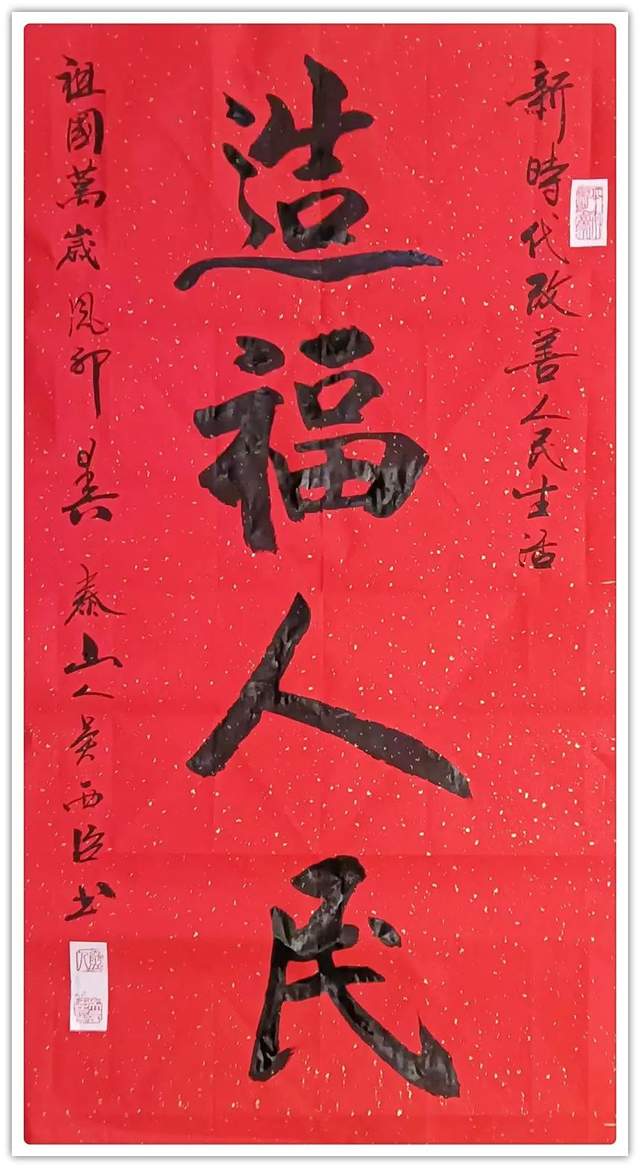 新時代改善人民生活
造福人民
祖國萬歲 泰山人吳西臣书